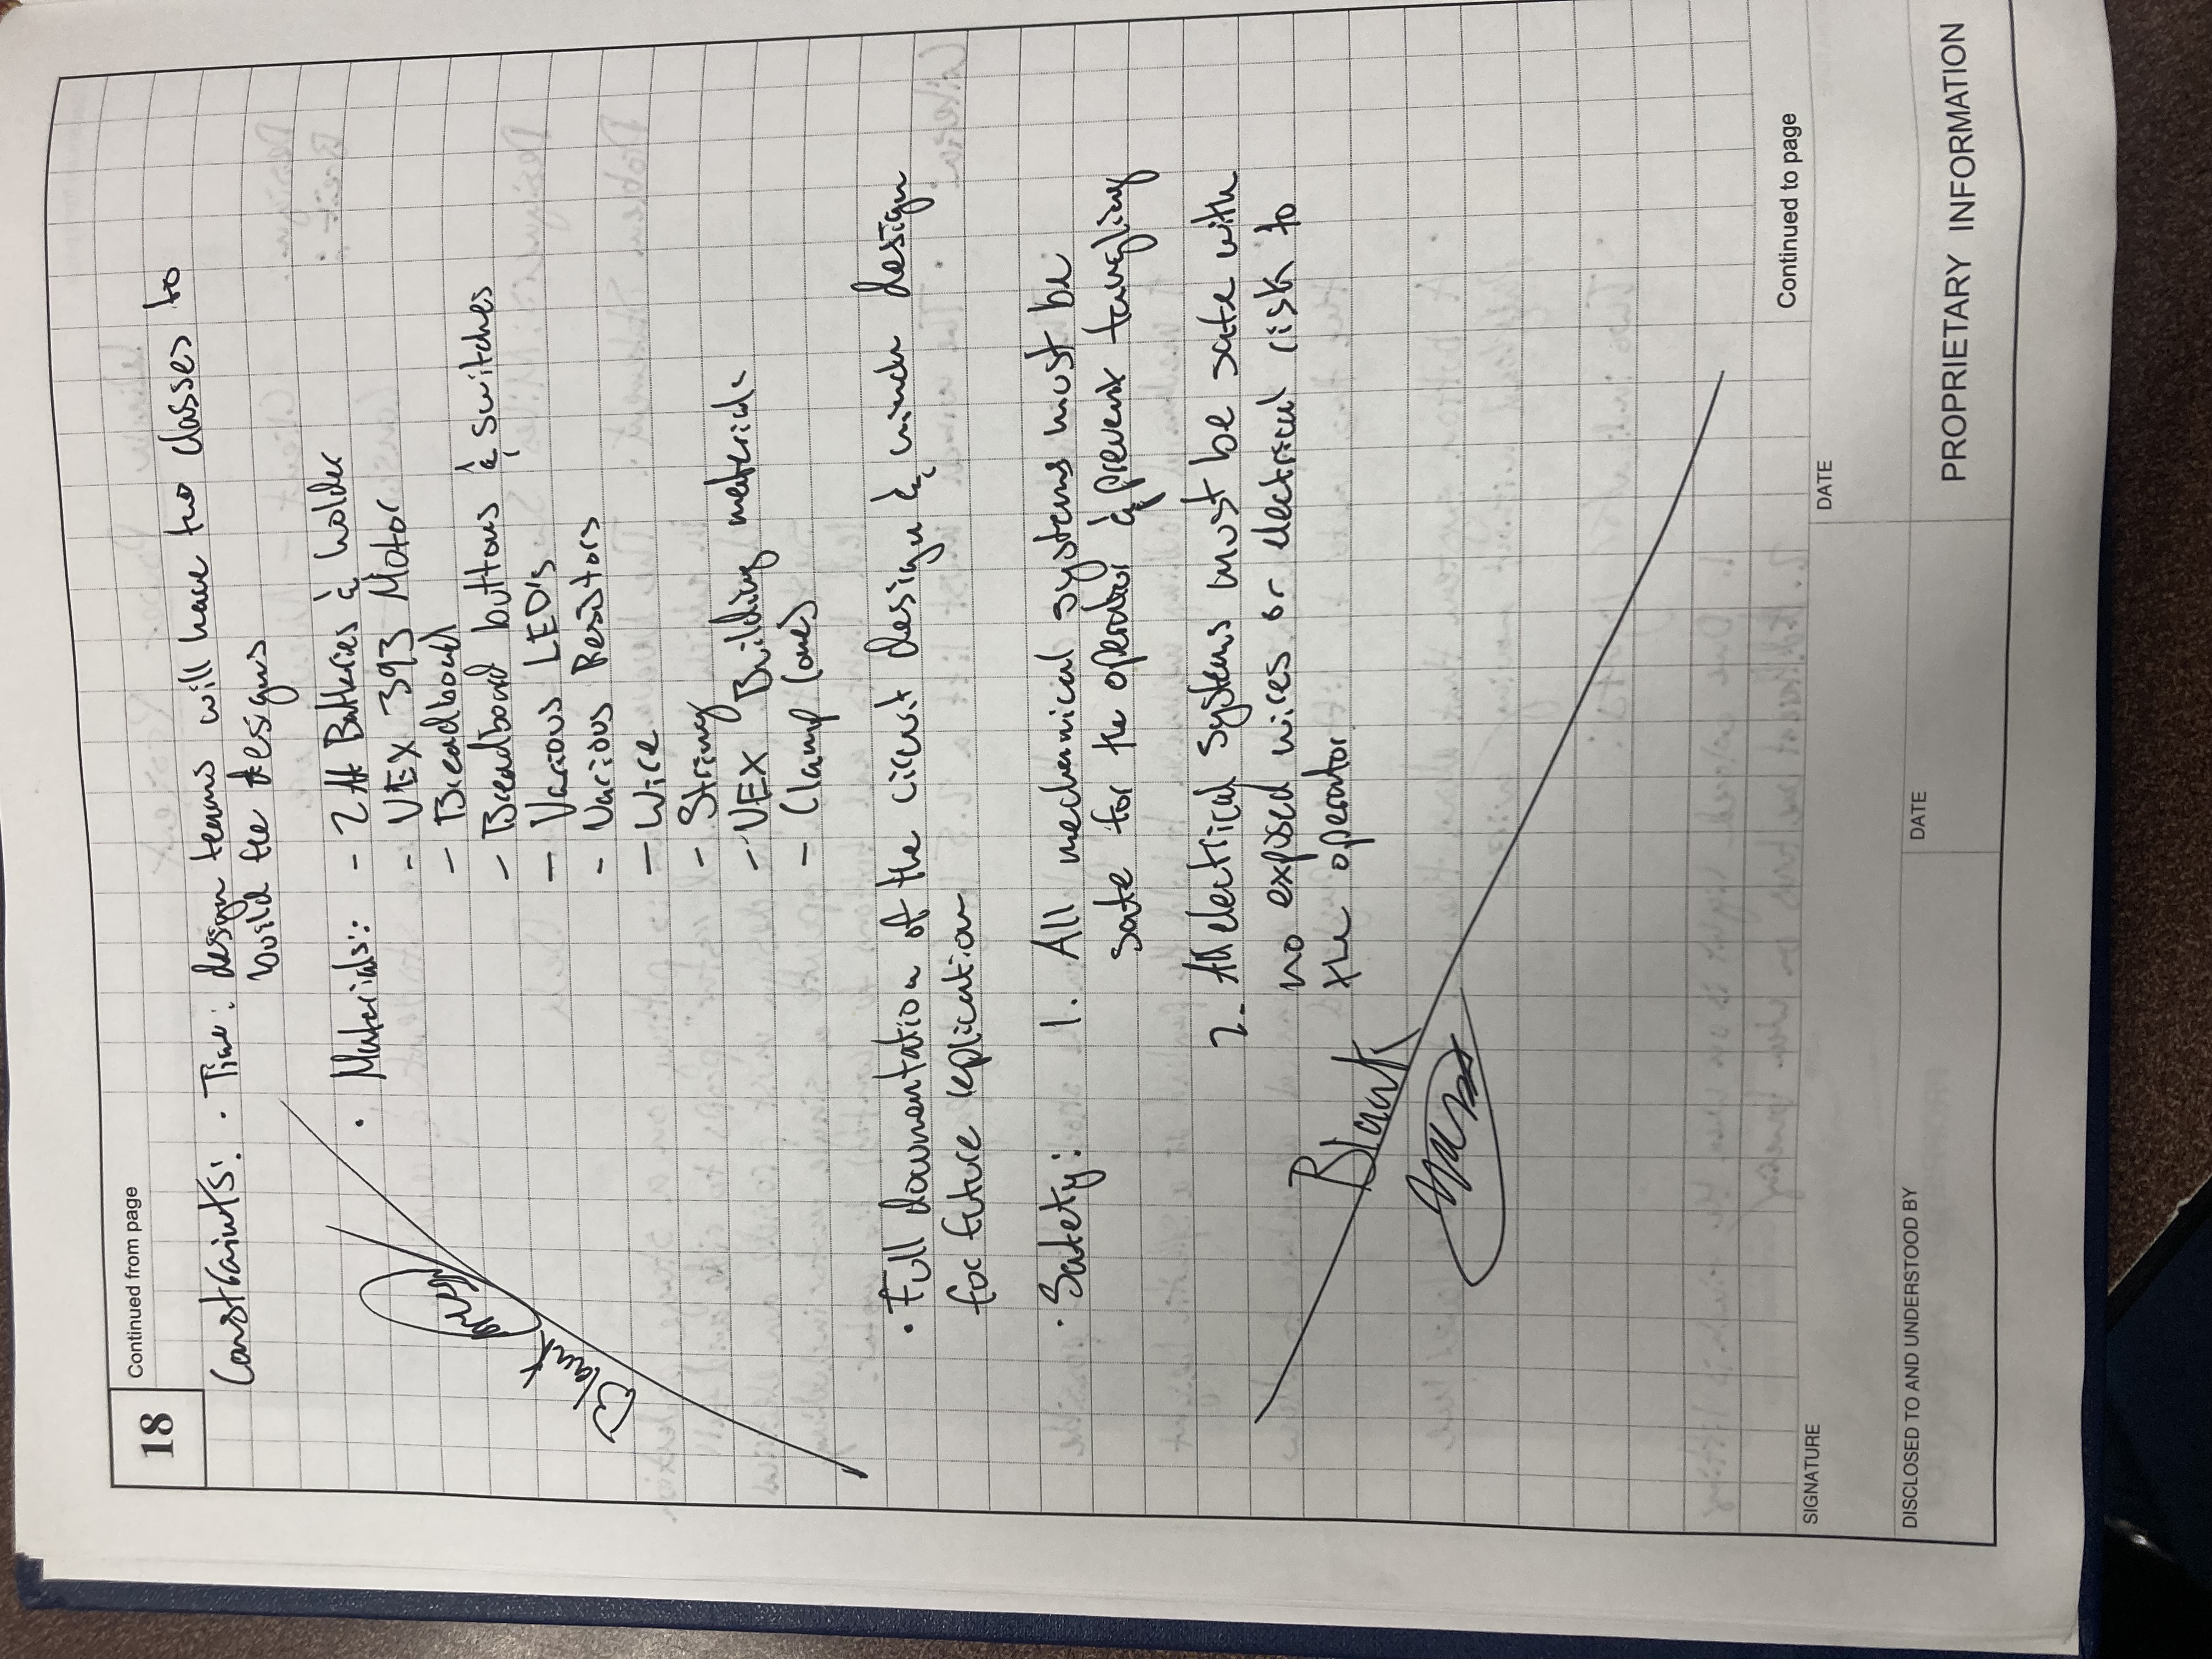 18
Continued from page
Constraints: · Time: design teams will have two classes to
build the designs
· Materials: - 2 AA Batteries & holder
- VEX 393 Motor
- Breadboard
- Breadboard buttons & switches
- Various LED's
- Various Resistors
- Wire
- String
- VEX Building materials
- Clamp (one)
Blank
· Full documentation of the circuit design & winch design
for future replication
· Safety: 1. All mechanical systems must be
safe for the operator & prevent tangling
2. All electrical systems must be safe with
no exposed wires or electrical risk to
the operator
Blank
Continued to page
SIGNATURE
DATE
DISCLOSED TO AND UNDERSTOOD BY
DATE
PROPRIETARY INFORMATION